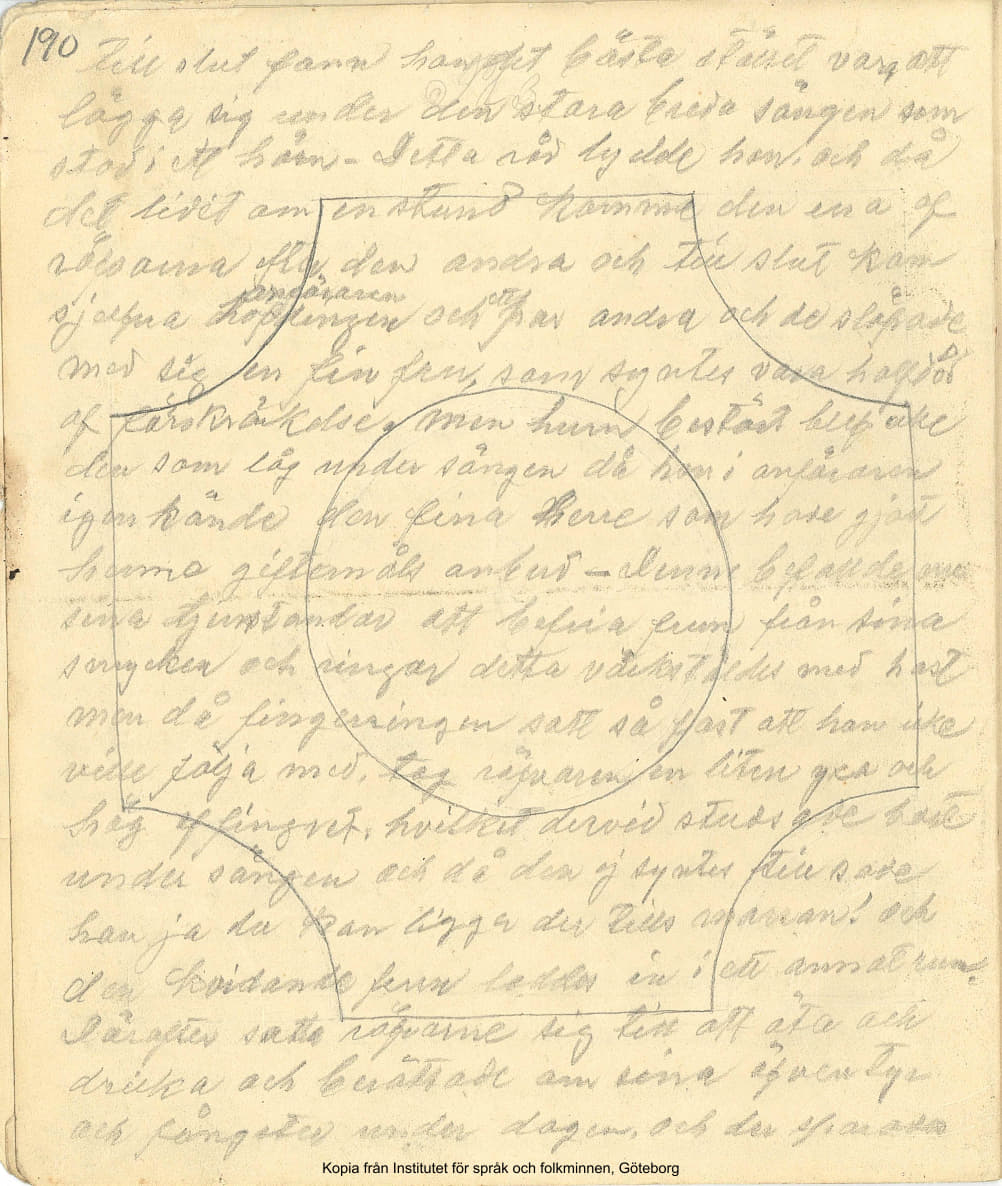 190
till slut fann hon det bästa stället var att
lägga sig under den stora breda sängen som
stod i ett hörn – Detta råd lydde hon och då
det lidit om en stund komme den ena af
röfvarna efter den andra och till slut kom
anföraren
sjelfva höfdingen och ett par andra och de släpade
med sig en fin fru, som syntes vara halfdöd
af förskräckelse, men huru bestört blef icke
den som låg under sängen då hon i anföraren
igenkände den fina Herre som hade gjort
henne giftermåls anbud – Denne befallde nu
sina tjenstandar att befria frun från sina
smycken och ringar detta värkställdes med hast
men då fingerringen satt så fast att han icke
ville följa med, tog röfvaren en liten yxa och
hög af fingret, hvilket dervid studsade bort
under sängen och då den ej syntes till sade
han ja du kan ligga der tills morran! och
den kvidande frun leddes in i ett annat rum.
Därefter satte röfvarne sig till att äta och
dricka och berättade om sina äfventyr
och fångster under dagen, och der sparades
Kopia från Institutet för språk och folkminnen, Göteborg